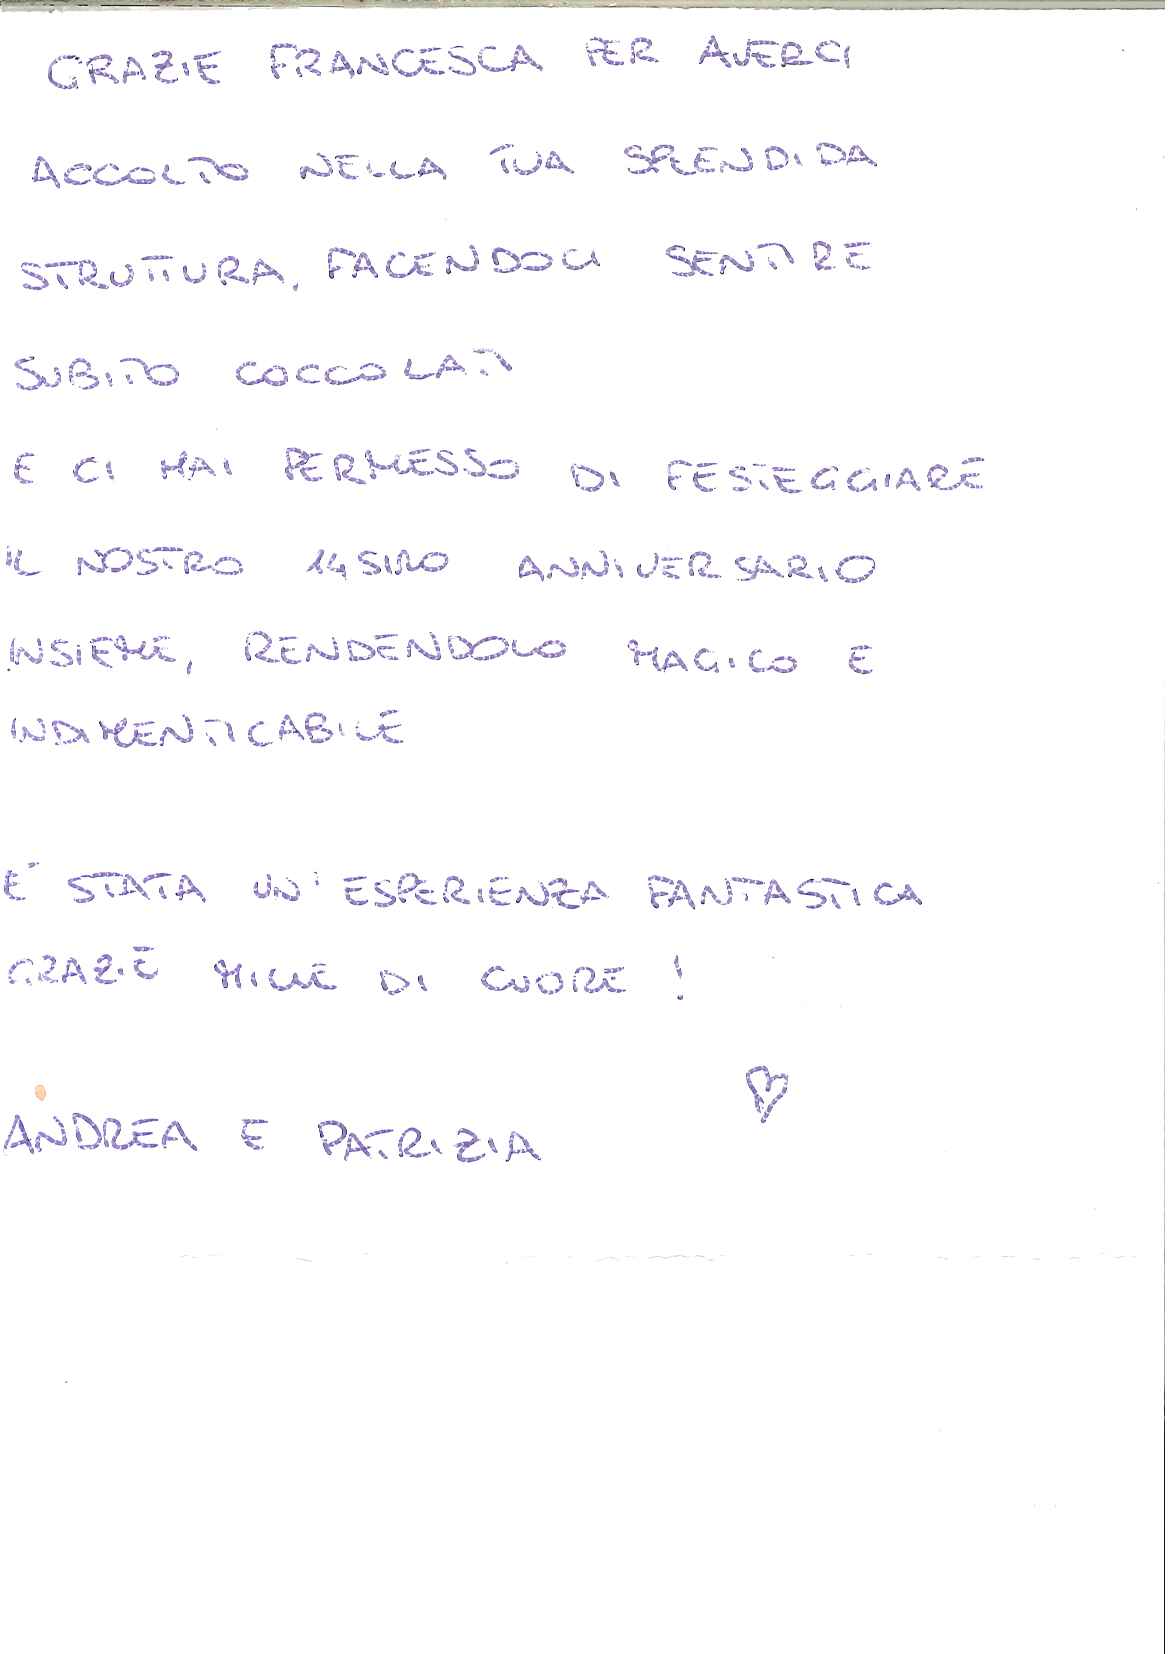 GRAZIE FRANCESCA PER AVERCI
ACCOLTO NELLA TUA SPLENDIDA
STRUTTURA, FACENDOCI SENTIRE
SUBITO COCCOLATI
E CI HAI PERMESSO DI FESTEGGIARE
IL NOSTRO 14SIMO ANNIVERSARIO
INSIEME, RENDENDOLO MAGICO E
INDIMENTICABILE
E' STATA UN'ESPERIENZA FANTASTICA
GRAZIE MILLE DI CUORE !
ANDREA E PATRIZIA